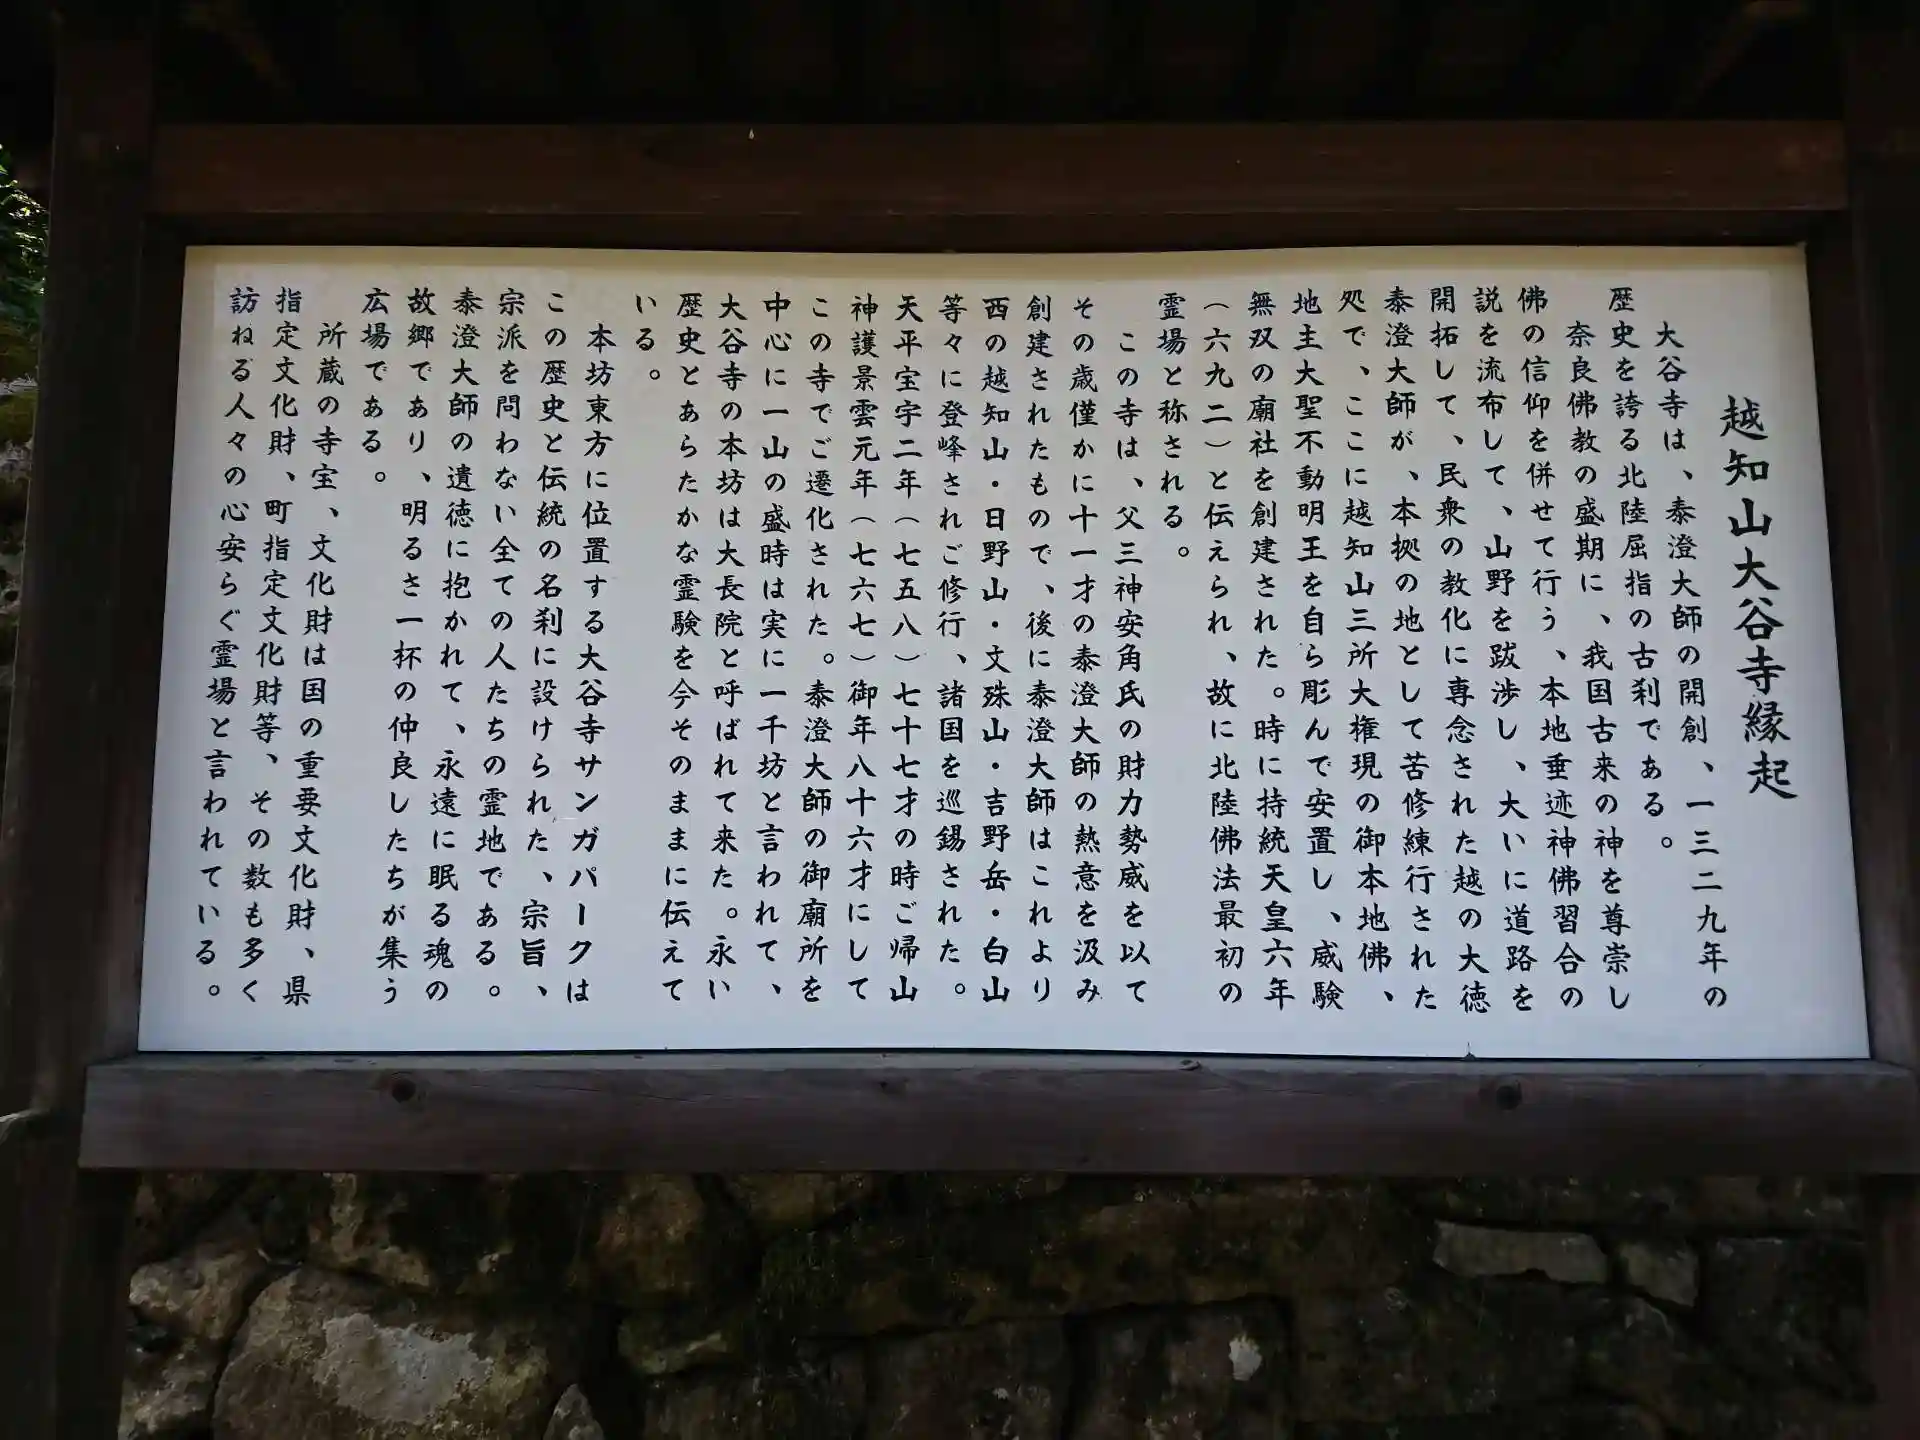 越知山大谷寺縁起
大谷寺は、泰澄大師の開創、一三二九年の
歴史を誇る北陸屈指の古刹である。
奈良佛教の盛期に、我国古来の神を尊崇し
佛の信仰を併せて行う、本地垂迹神佛習合の
説を流布して、山野を跋渉し、大いに道路を
開拓して、民衆の教化に専念された越の大徳
泰澄大師が、本拠の地として苦修練行された
処で、ここに越知山三所大権現の御本地佛、
地主大聖不動明王を自ら彫んで安置し、威験
無双の廟社を創建された。時に持統天皇六年
（六九二）と伝えられ、故に北陸佛法最初の
霊場と称される。
この寺は、父三神安角氏の財力勢威を以て
その歳僅かに十一才の泰澄大師の熱意を汲み
創建されたもので、後に泰澄大師はこれより
西の越知山・日野山・文殊山・吉野岳・白山
等々に登峰されご修行、諸国を巡錫された。
天平宝字二年（七五八）七十七才の時ご帰山
神護景雲元年（七六七）御年八十六才にして
この寺でご遷化された。泰澄大師の御廟所を
中心に一山の盛時は実に一千坊と言われて、
大谷寺の本坊は大長院と呼ばれて来た。永い
歴史とあらたかな霊験を今そのままに伝えて
いる。
本坊東方に位置する大谷寺サンガパークは
この歴史と伝統の名刹に設けられた、宗旨、
宗派を問わない全ての人たちの霊地である。
泰澄大師の遺徳に抱かれて、永遠に眠る魂の
故郷であり、明るさ一杯の仲良したちが集う
広場である。
所蔵の寺宝、文化財は国の重要文化財、県
指定文化財、町指定文化財等、その数も多く
訪ねる人々の心安らぐ霊場と言われている。